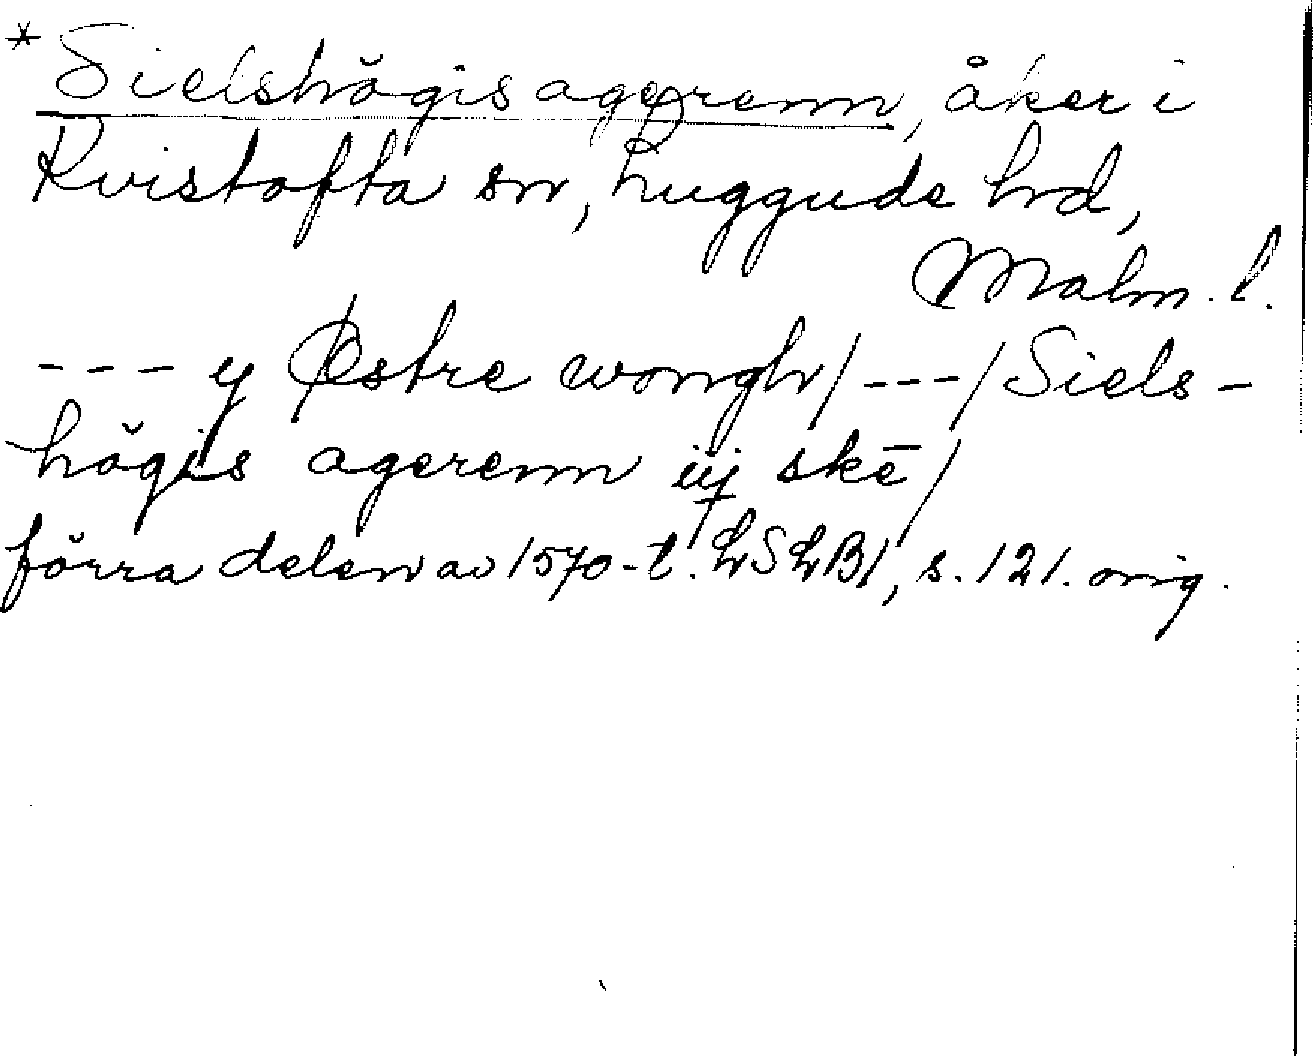 * Sielshögis agerenn, åker i
Kvistofta sn, Luggude hd,
Malm. l.
--- y Østre wongh/---/Siels-
högis agerenn iij skē/
förra delen av 1570-t. LSLB1, s. 121. orig.